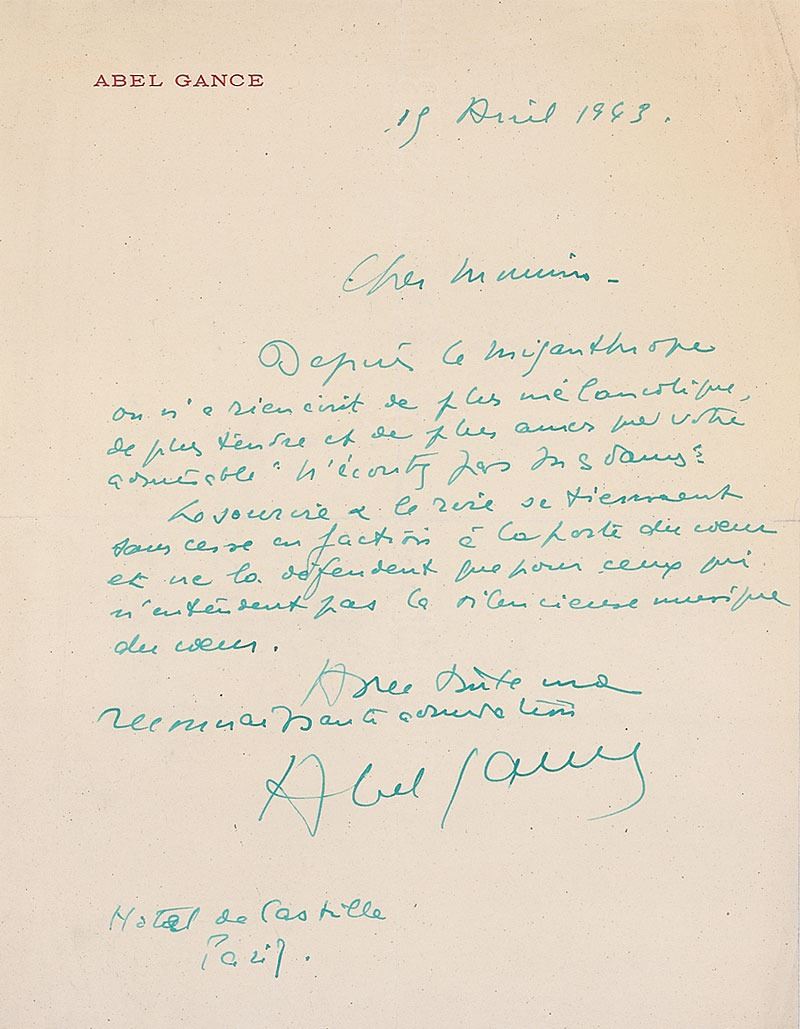 ABEL GANCE
19 Avril 1943.
Cher
Depuis le misanthrope
on n'a rien écrit de plus mélancolique,
de plus tendre et de plus amer que votre
admirable "N'écoutez pas Mesdames"
Le sourire & le rire se tiennent
sans cesse en faction à la porte du cœur
et ne la défendent que pour ceux qui
n'entendent pas la silencieuse musique
du cœur.
Avec toute ma
reconnaissante admiration
Abel Gance
Hotel de Castille
Paris.